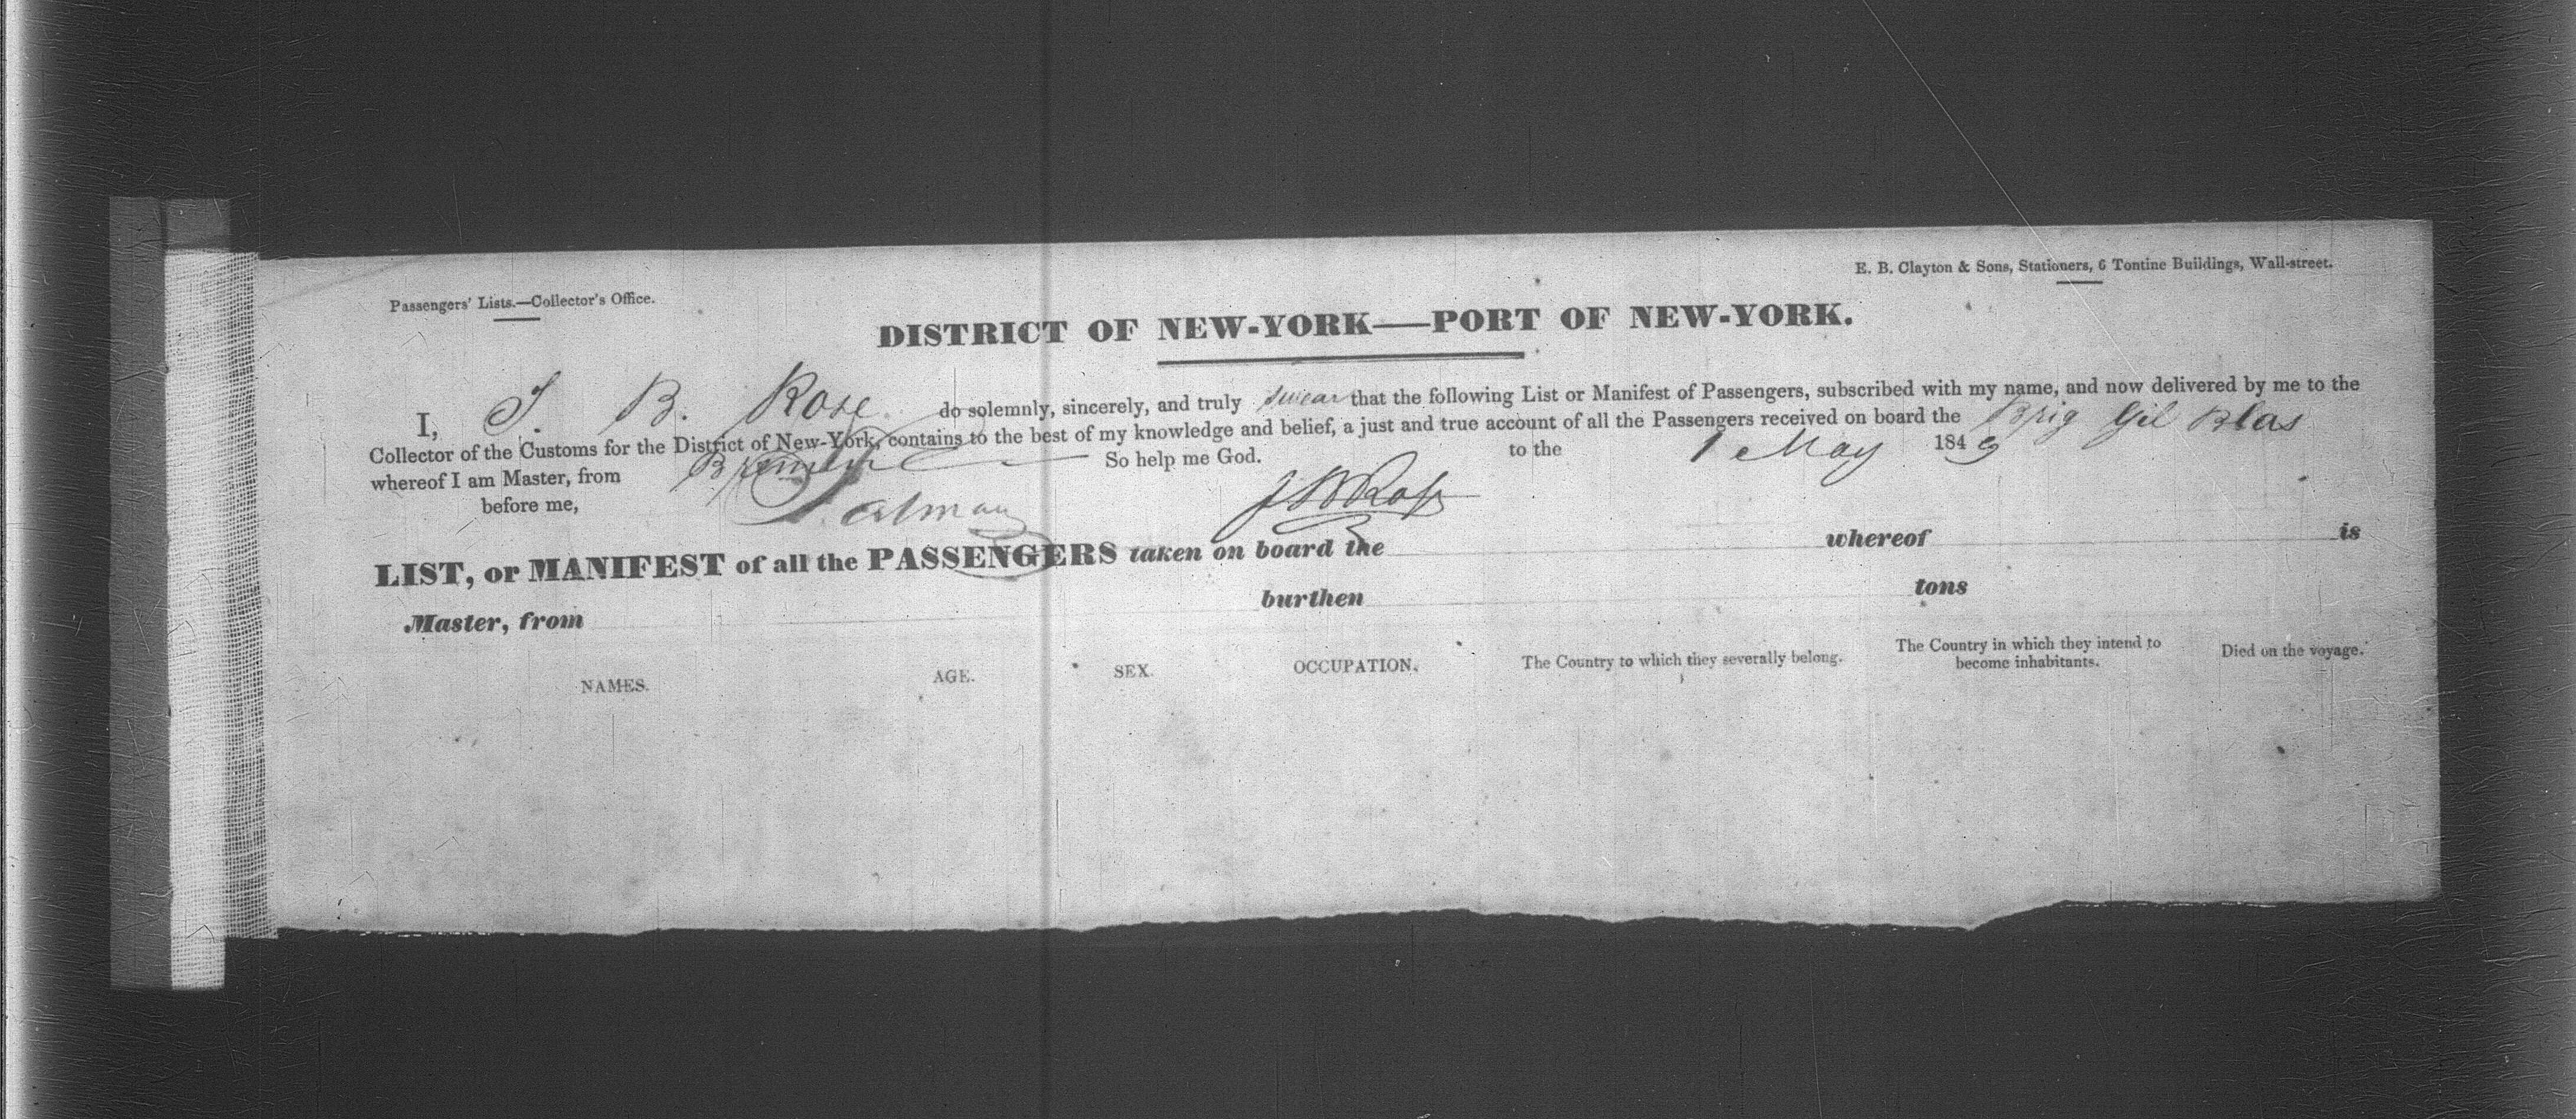 E. B. Clayton & Sons, Stationers, 6 Tontine Buildings, Wall-street.
Passengers' Lists.—Collector's Office.
DISTRICT OF NEW-YORK—PORT OF NEW-YORK.
I, J. B. Rose do solemnly, sincerely, and truly swear that the following List or Manifest of Passengers, subscribed with my name, and now delivered by me to the
Collector of the Customs for the District of New-York, contains to the best of my knowledge and belief, a just and true account of all the Passengers received on board the Brig Gil Blas
whereof I am Master, from Bremen So help me God. to the 1 May 1849
before me,
LIST, or MANIFEST of all the PASSENGERS taken on board the whereof is
Master, from burthen tons
NAMES. AGE. SEX. OCCUPATION. The Country to which they severally belong. The Country in which they intend to become inhabitants. Died on the voyage.